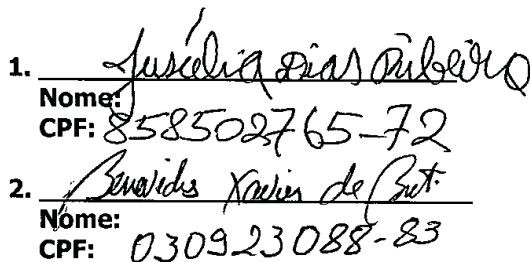 1. Jusélia Dias Ribeiro
Nome:
CPF: 858502765-72
2. Benevides Xavier de
Nome:
CPF: 030923088-83